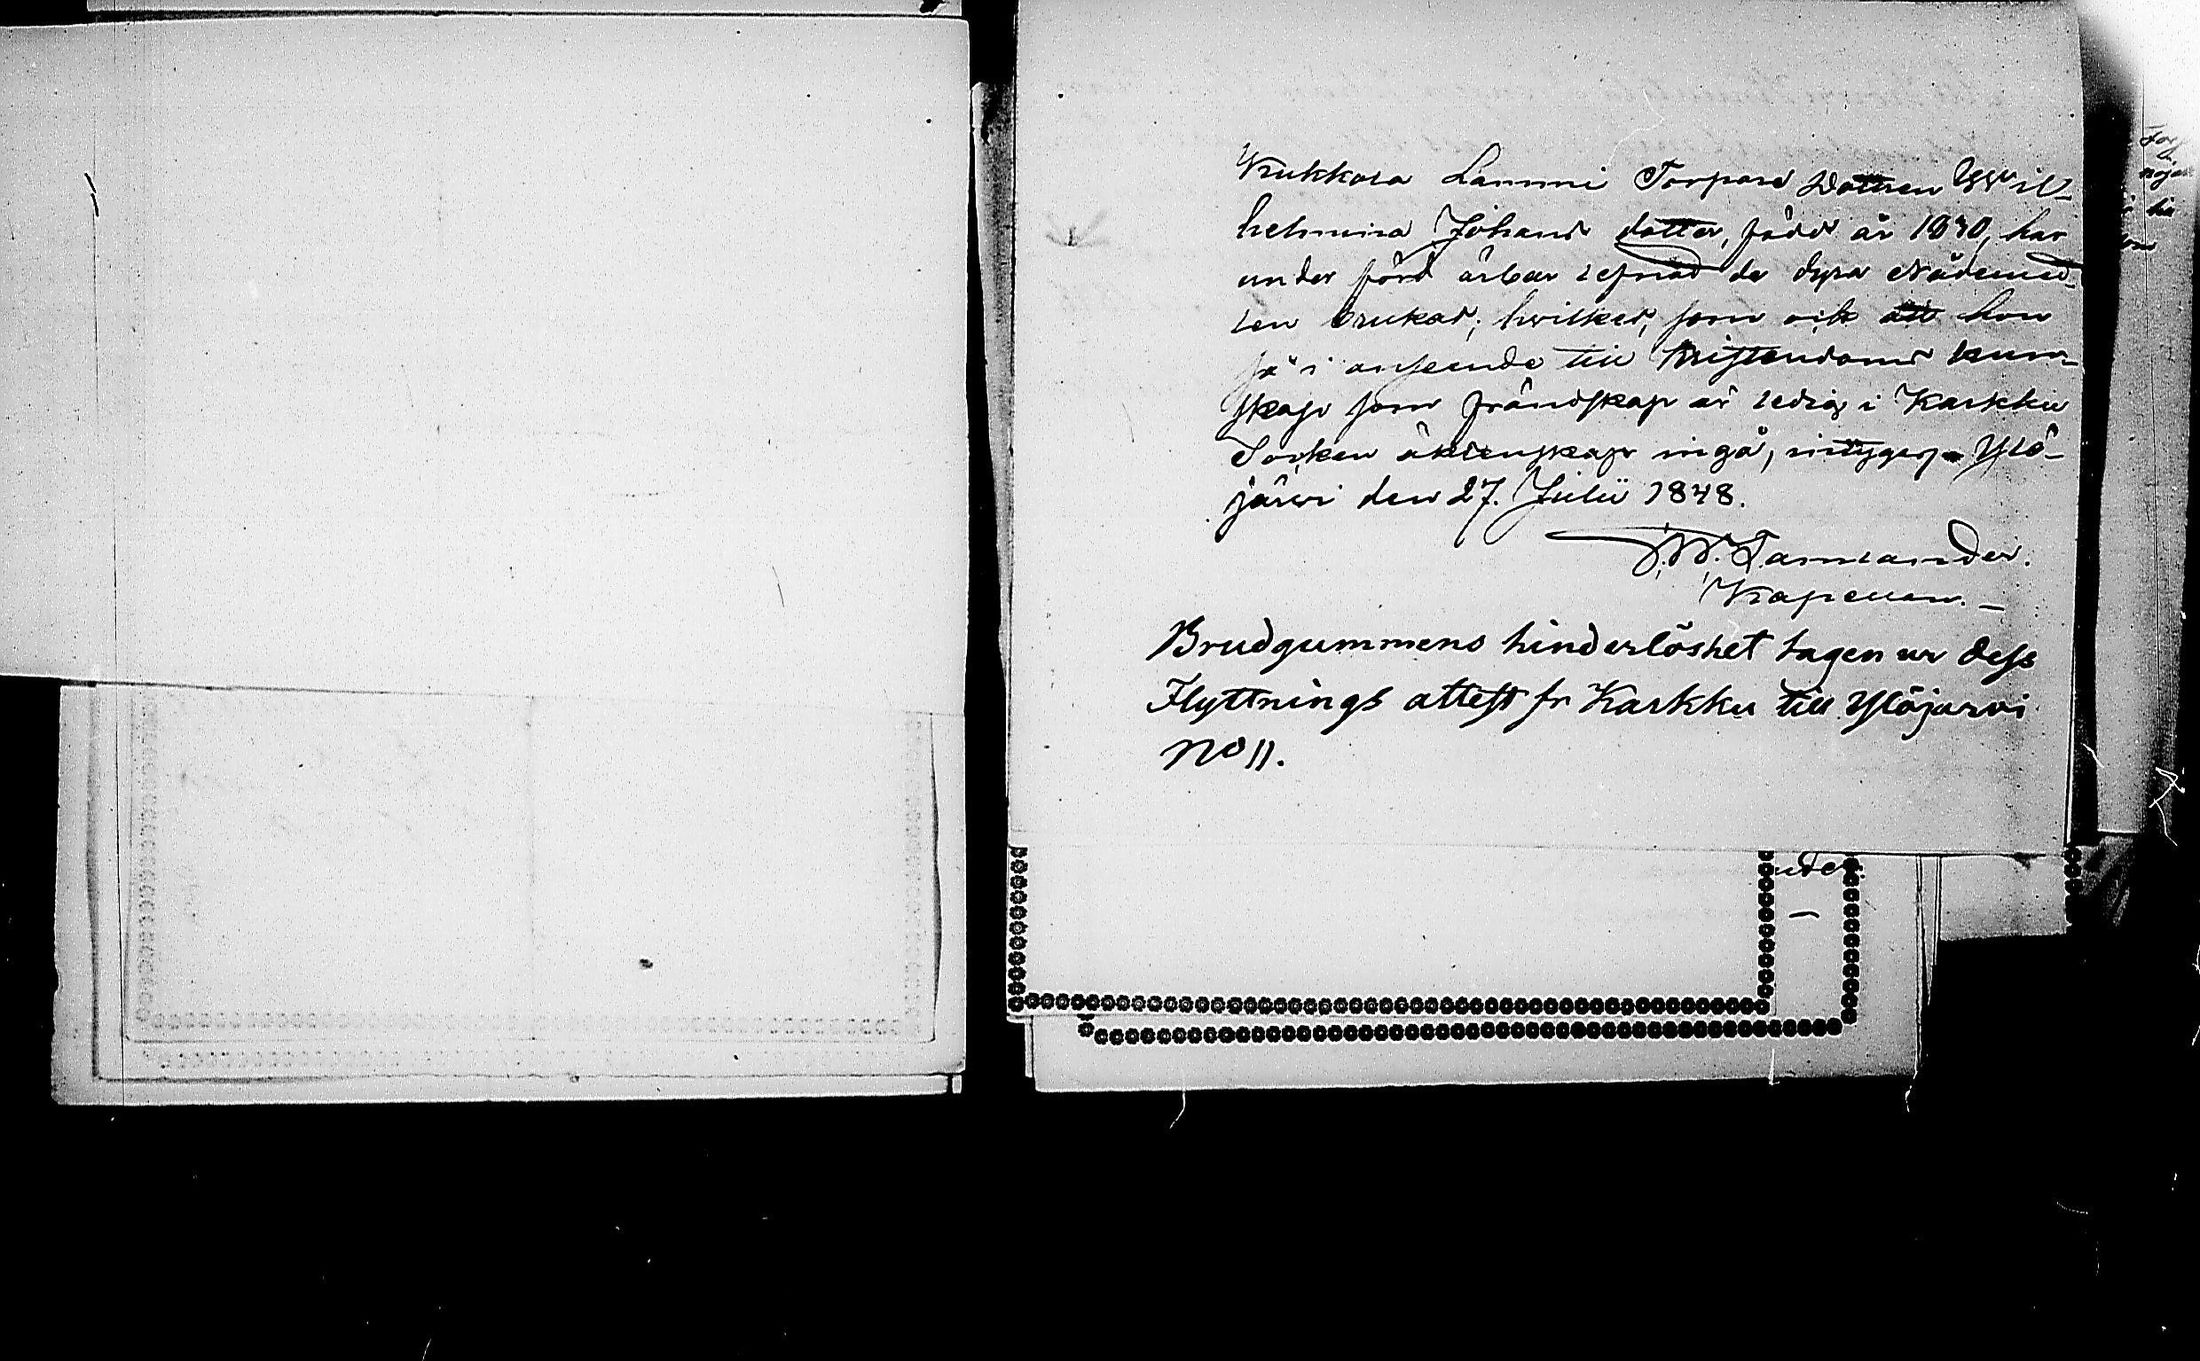 Kukkola Lammi Torpare Dottren Wil-
helmina Johans dotter, född år 1830, har
under förd ärbar lefnad de dyra Nådemed-
len brukat; hvilket, som ock att hon
så i anseende till Kristendoms kun-
skap som frändskap är ledig i Karkku
Socken äktenskap ingå, intygas. Ylö-
järvi den 27. Julii 1848.
Kapellan.
Brudgummens hinderlöshet tagen ur dess
Flyttnings attest fr Karkku till Ylöjarvi
No 11.